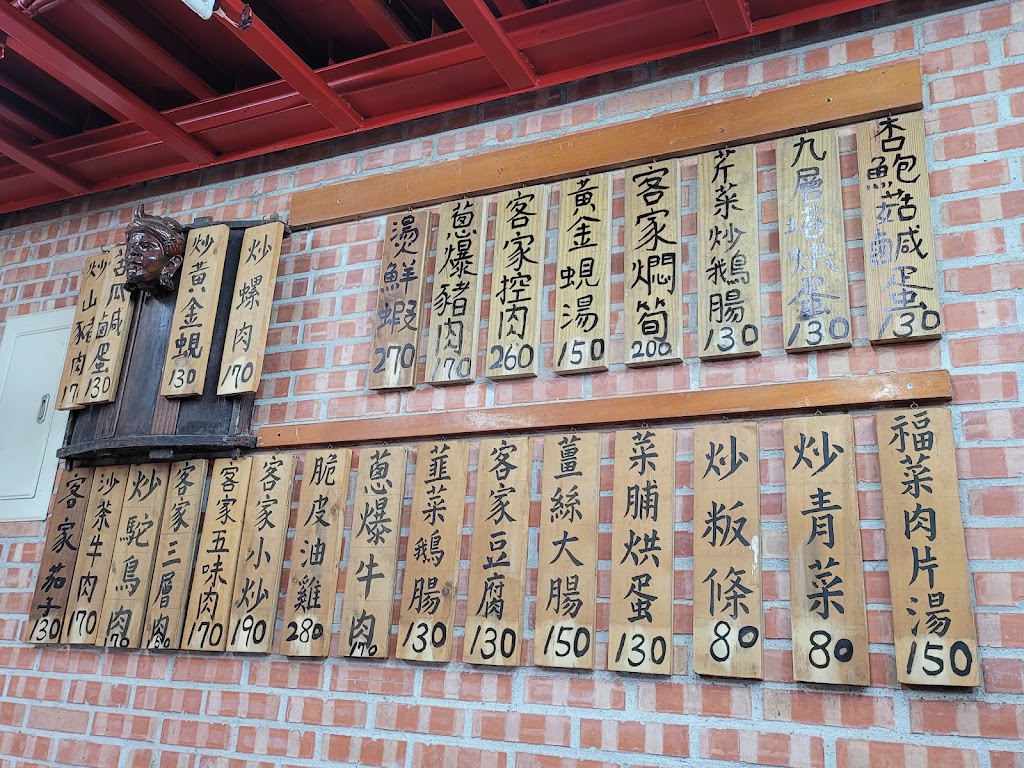 炒山豬肉 17
苦瓜鹹蛋 130
炒黃金蜆 130
炒螺肉 170
燙鮮蝦 270
蔥爆豬肉 170
客家控肉 260
黃金蜆湯 150
客家燜筍 200
芹菜炒鵝腸 130
九層塔煎蛋 130
杏鮑菇鹹蛋 130
客家茄子 130
沙茶牛肉 170
炒鴕鳥肉 170
客家三層肉
客家五味肉 170
客家小炒 190
脆皮油雞 280
蔥爆牛肉 170
韮菜鵝腸 130
客家豆腐 130
薑絲大腸 150
菜脯烘蛋 130
炒粄條 80
炒青菜 80
福菜肉片湯 150